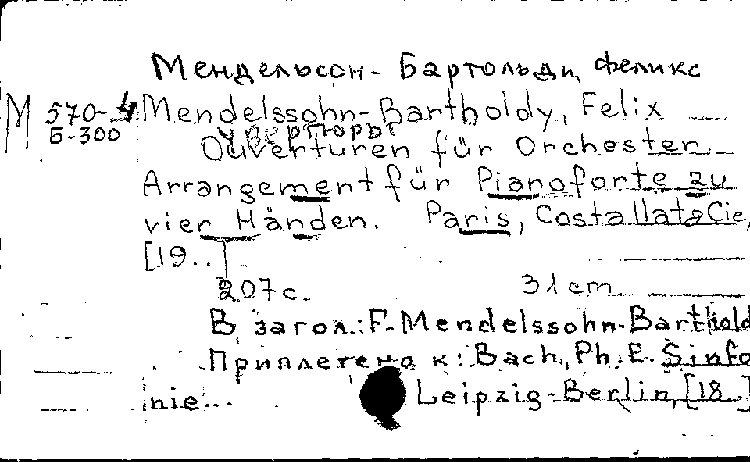 Мендельсон-Бартольди, Феликс
М 570-4 Mendelssohn-Bartholdy, Felix
Б-300 Увертюры
Ouverturen für Orchester
Arrangement für Pianoforte zu
vier Händen. Paris, Costallat & Cie,
[19..]
207 с. 31 cm
В загол.: F. Mendelssohn-Barthold
Приплетена к: Bach, Ph. E. Sinfo
nie... Leipzig-Berlin, [18..]